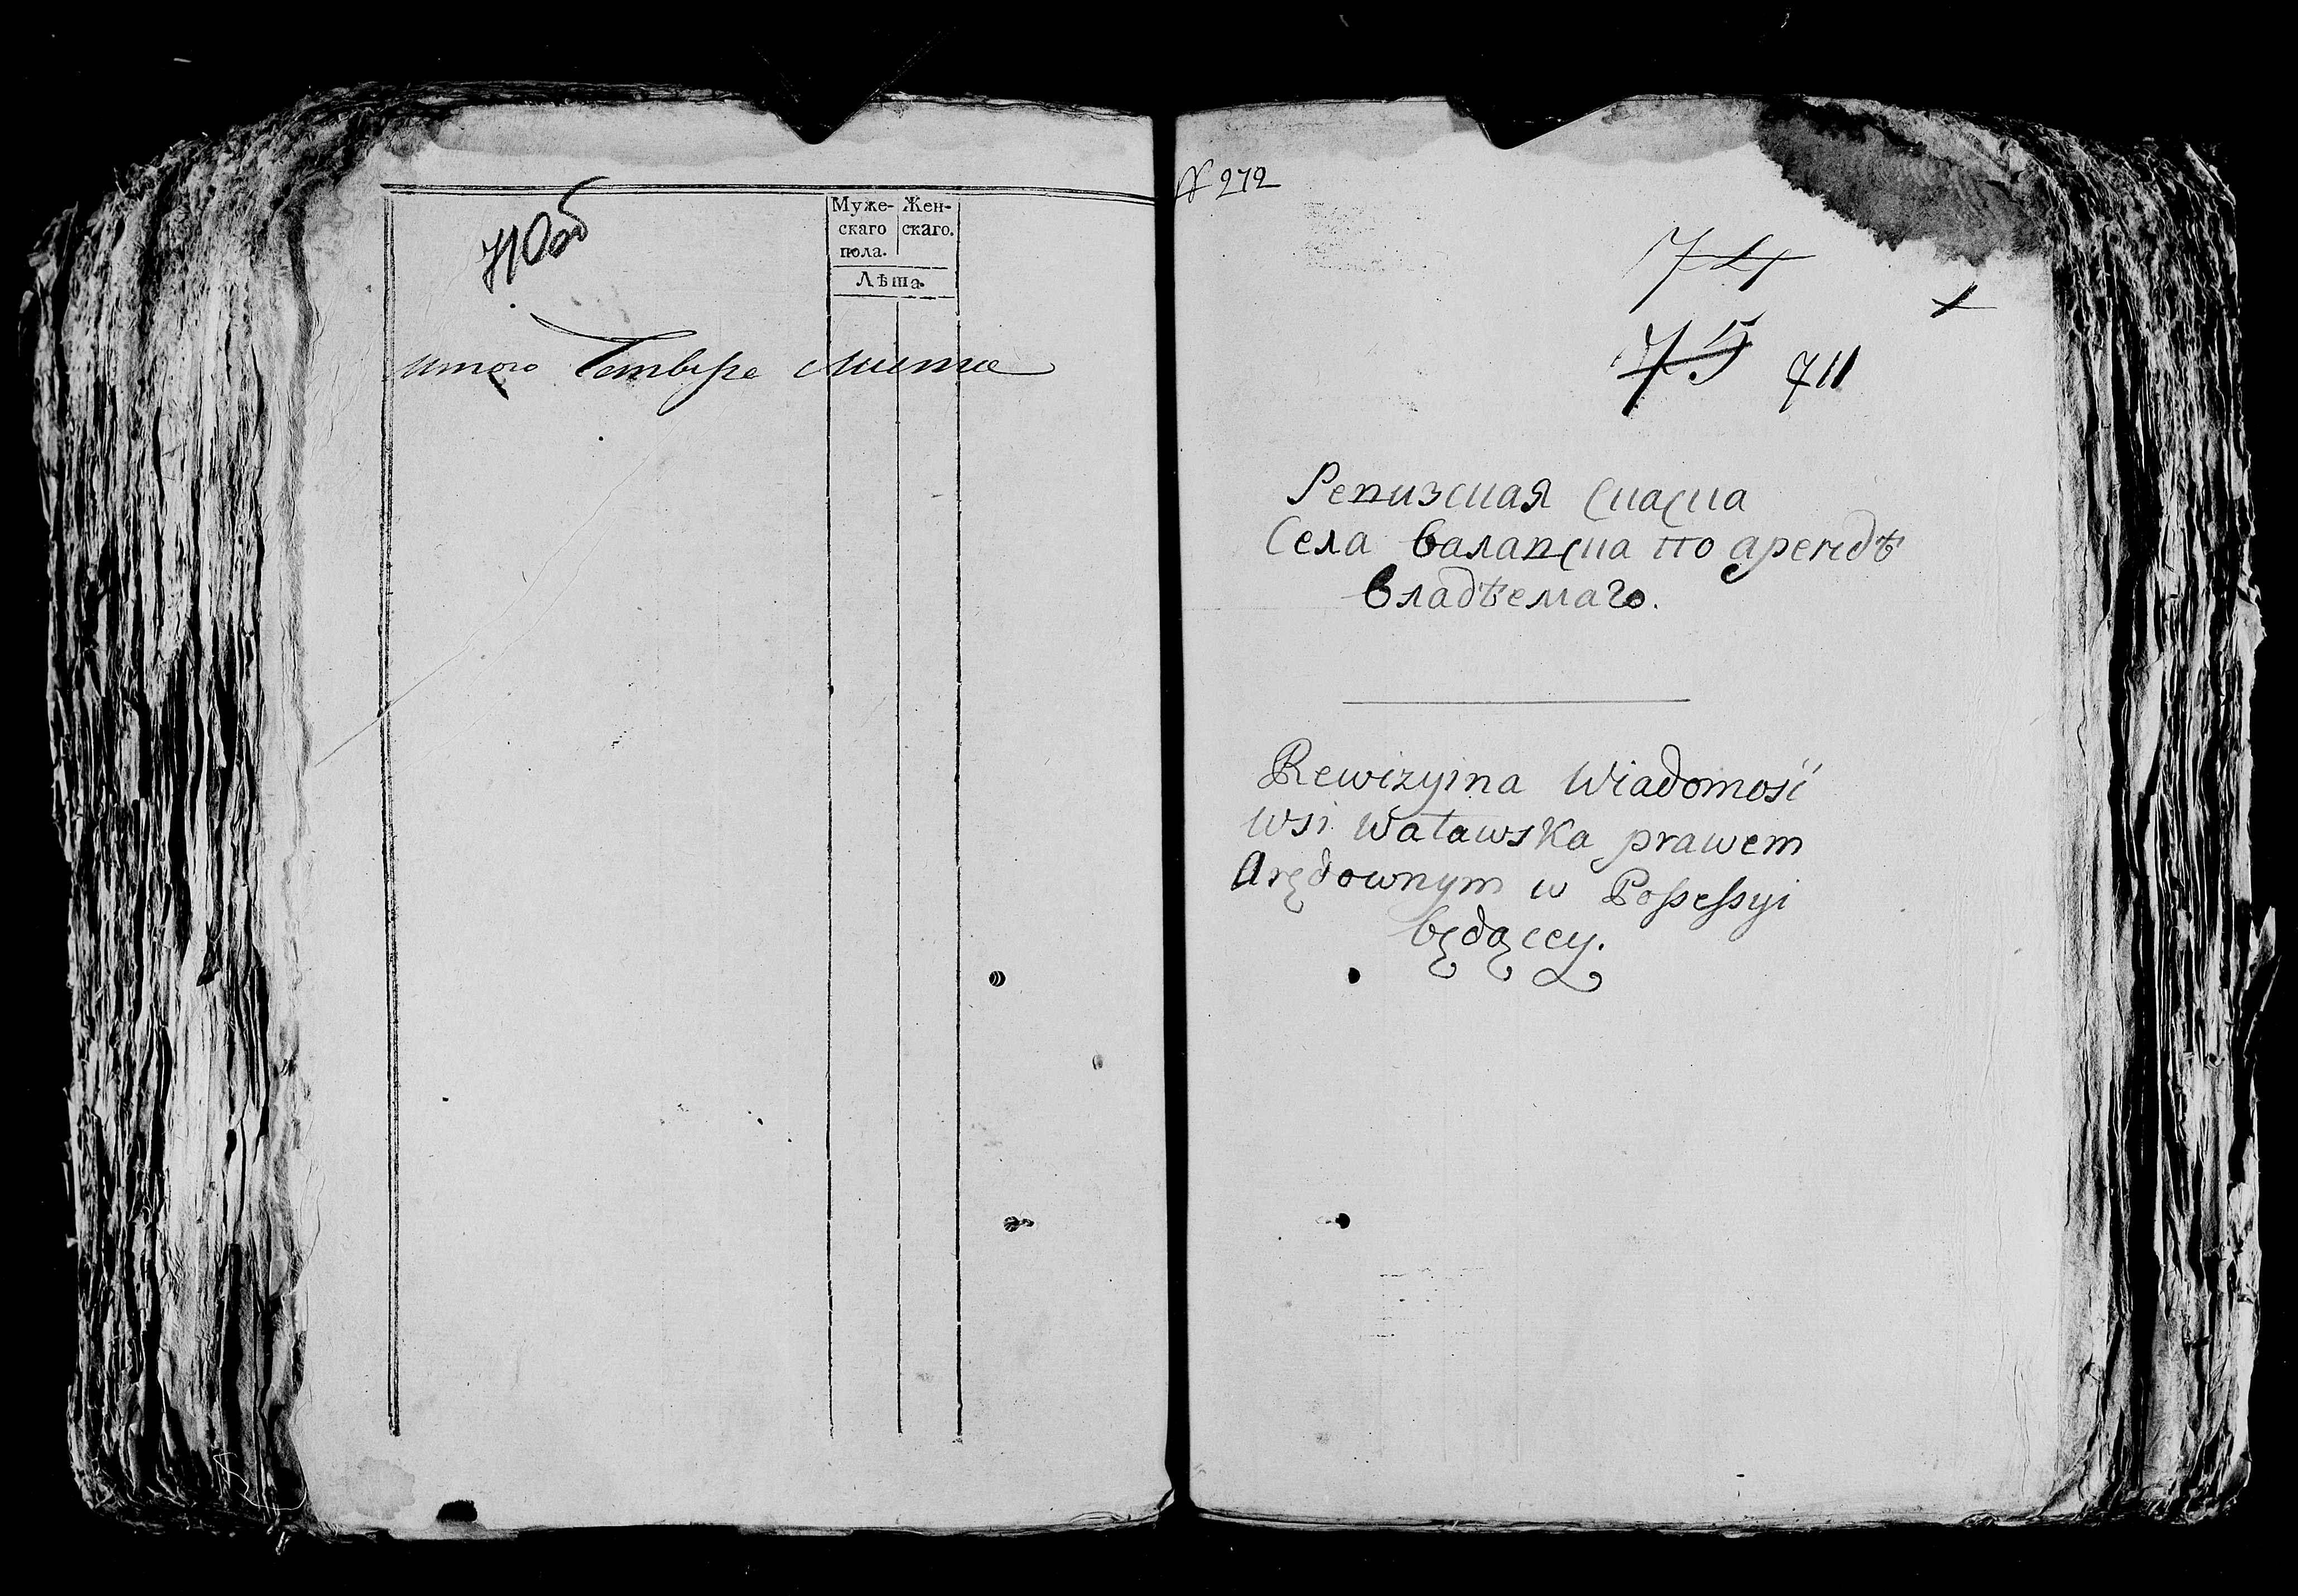 710об
Муже- Жен-
скаго скаго.
пола.
Лѣта.
итого Четыре листа
№ 272
74
75 711
Ревизская скаска
Села валавска по арендѣ
владѣемаго.
Rewizyina Wiadomość
wsi Waławska prawem
Arędownym w Possessyi
będąccy.